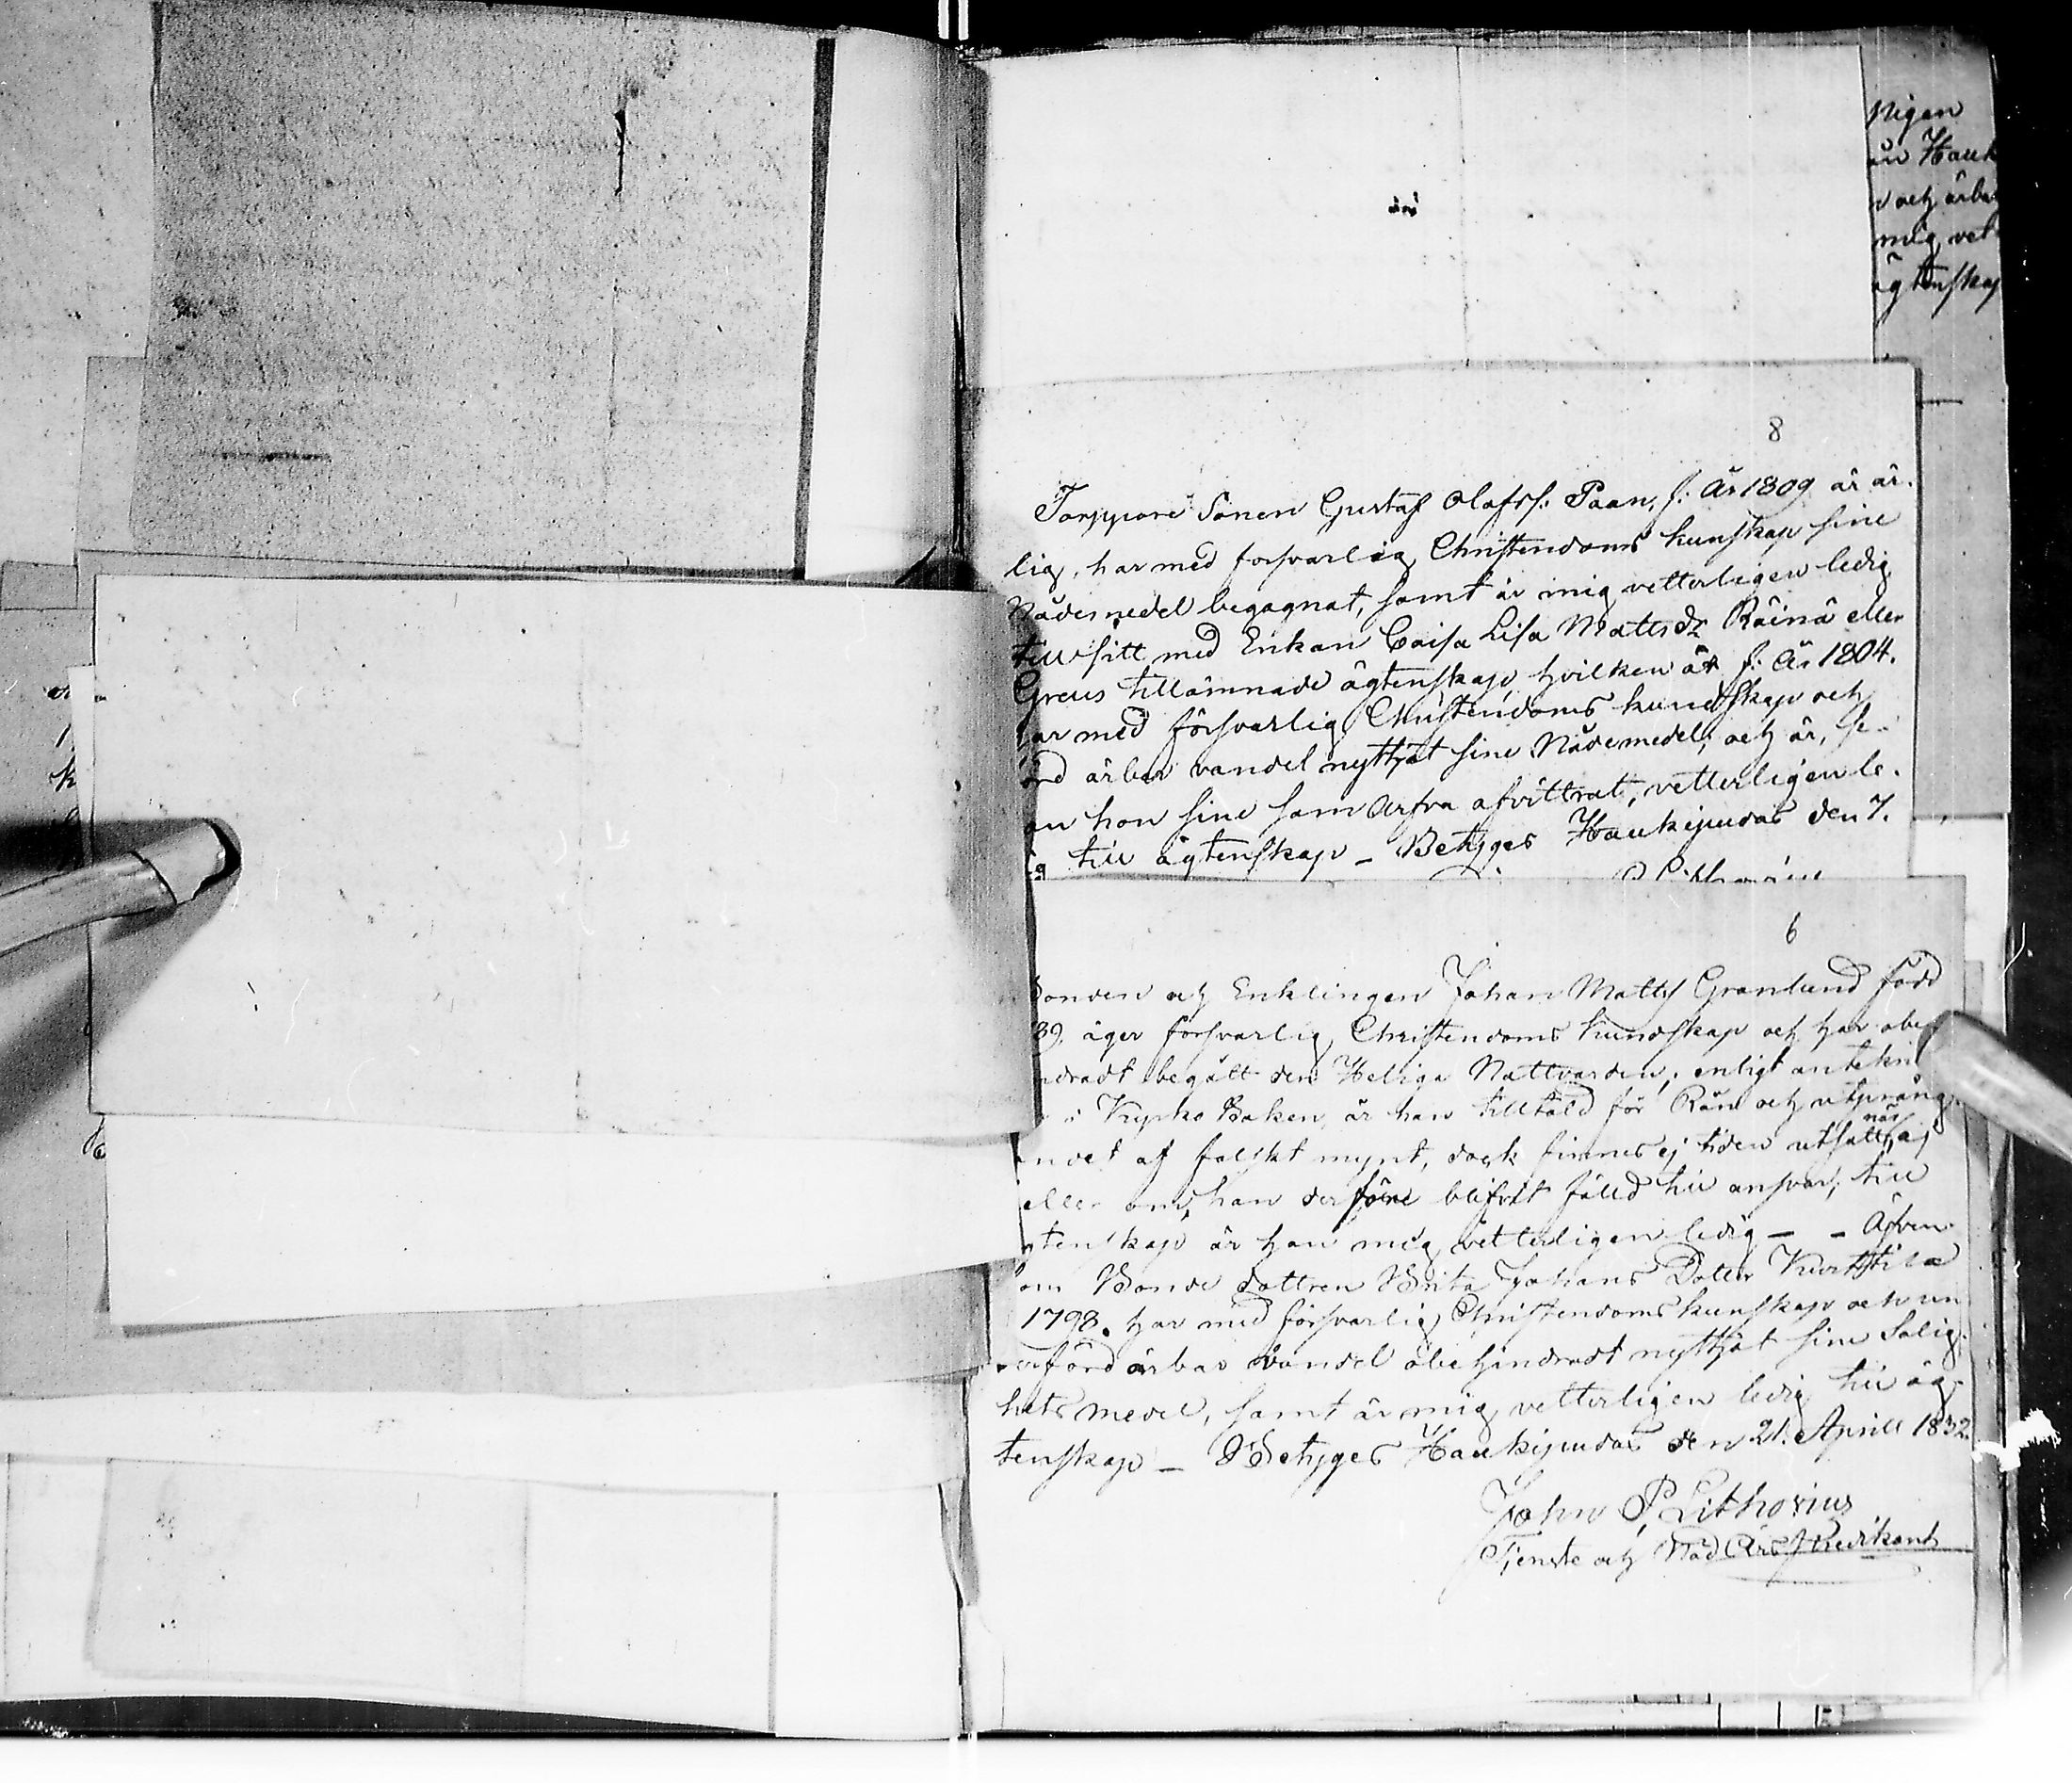 pigen
än Hauk
och ärba
mig vet
ägtenskap
8
Torppare Sonen Gustaf Olofss: Paan, f: År 1809 är är-
lig, har med forsvarlig Christendoms kunskap sine
Nådesmedel begagnat, samt är mig vetterligen ledig
till sitt med Enkan Caisa Lisa Mattsdr Räinä eller
Greus tillämnade ägtenskap, hvilken är f: År 1804.
har med försvarlig Christendoms kundskap och
ärbar vandel nyttjat sine Nådemedel, och är, se-
an hon sine sam Arfva afvittrat, vetterligen le-
ig till ägtenskap – Betyges Haukipudas den 7.
6
Bonden och Enklingen Johan Matts: Granlund född
89, äger försvarlig Christendoms kundskap och har obe-
indradt begått den Heliga Nattvarden; enligt antekni
i Kyrko Boken, är han tilltald för Rån och utprång
andet af falskt mynt, dock finnes ej tiden utsatt, når, ej
eller om, han derföre blifvit fälld till ansvar; till
gtenskap är han mig vetterligen ledig – – Äfven-
om Bonde dottren Brita Johans Dotter Kurttila
1798. har med försvarlig Christendoms kunskap och un
erförd ärbar vandel obehindradt nyttjat sine Salig-
hets medel, samt är mig vetterligen ledig till äg-
tenskap – Betyges Haukipudas den 21. Aprill 1832.
John P. Lithovius
Tjenste och Nåd Års Predikant